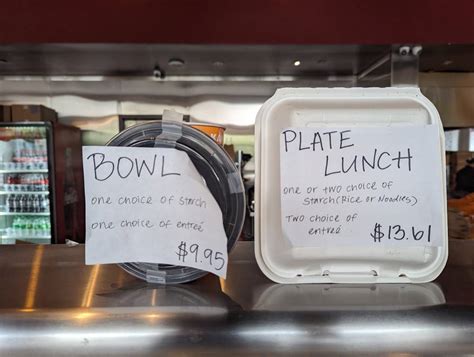 BOWL
one choice of starch
one choice of entreé
$9.95
PLATE
LUNCH
one or two choice of
starch (Rice or Noodles)
Two choice of
entreé
$13.61